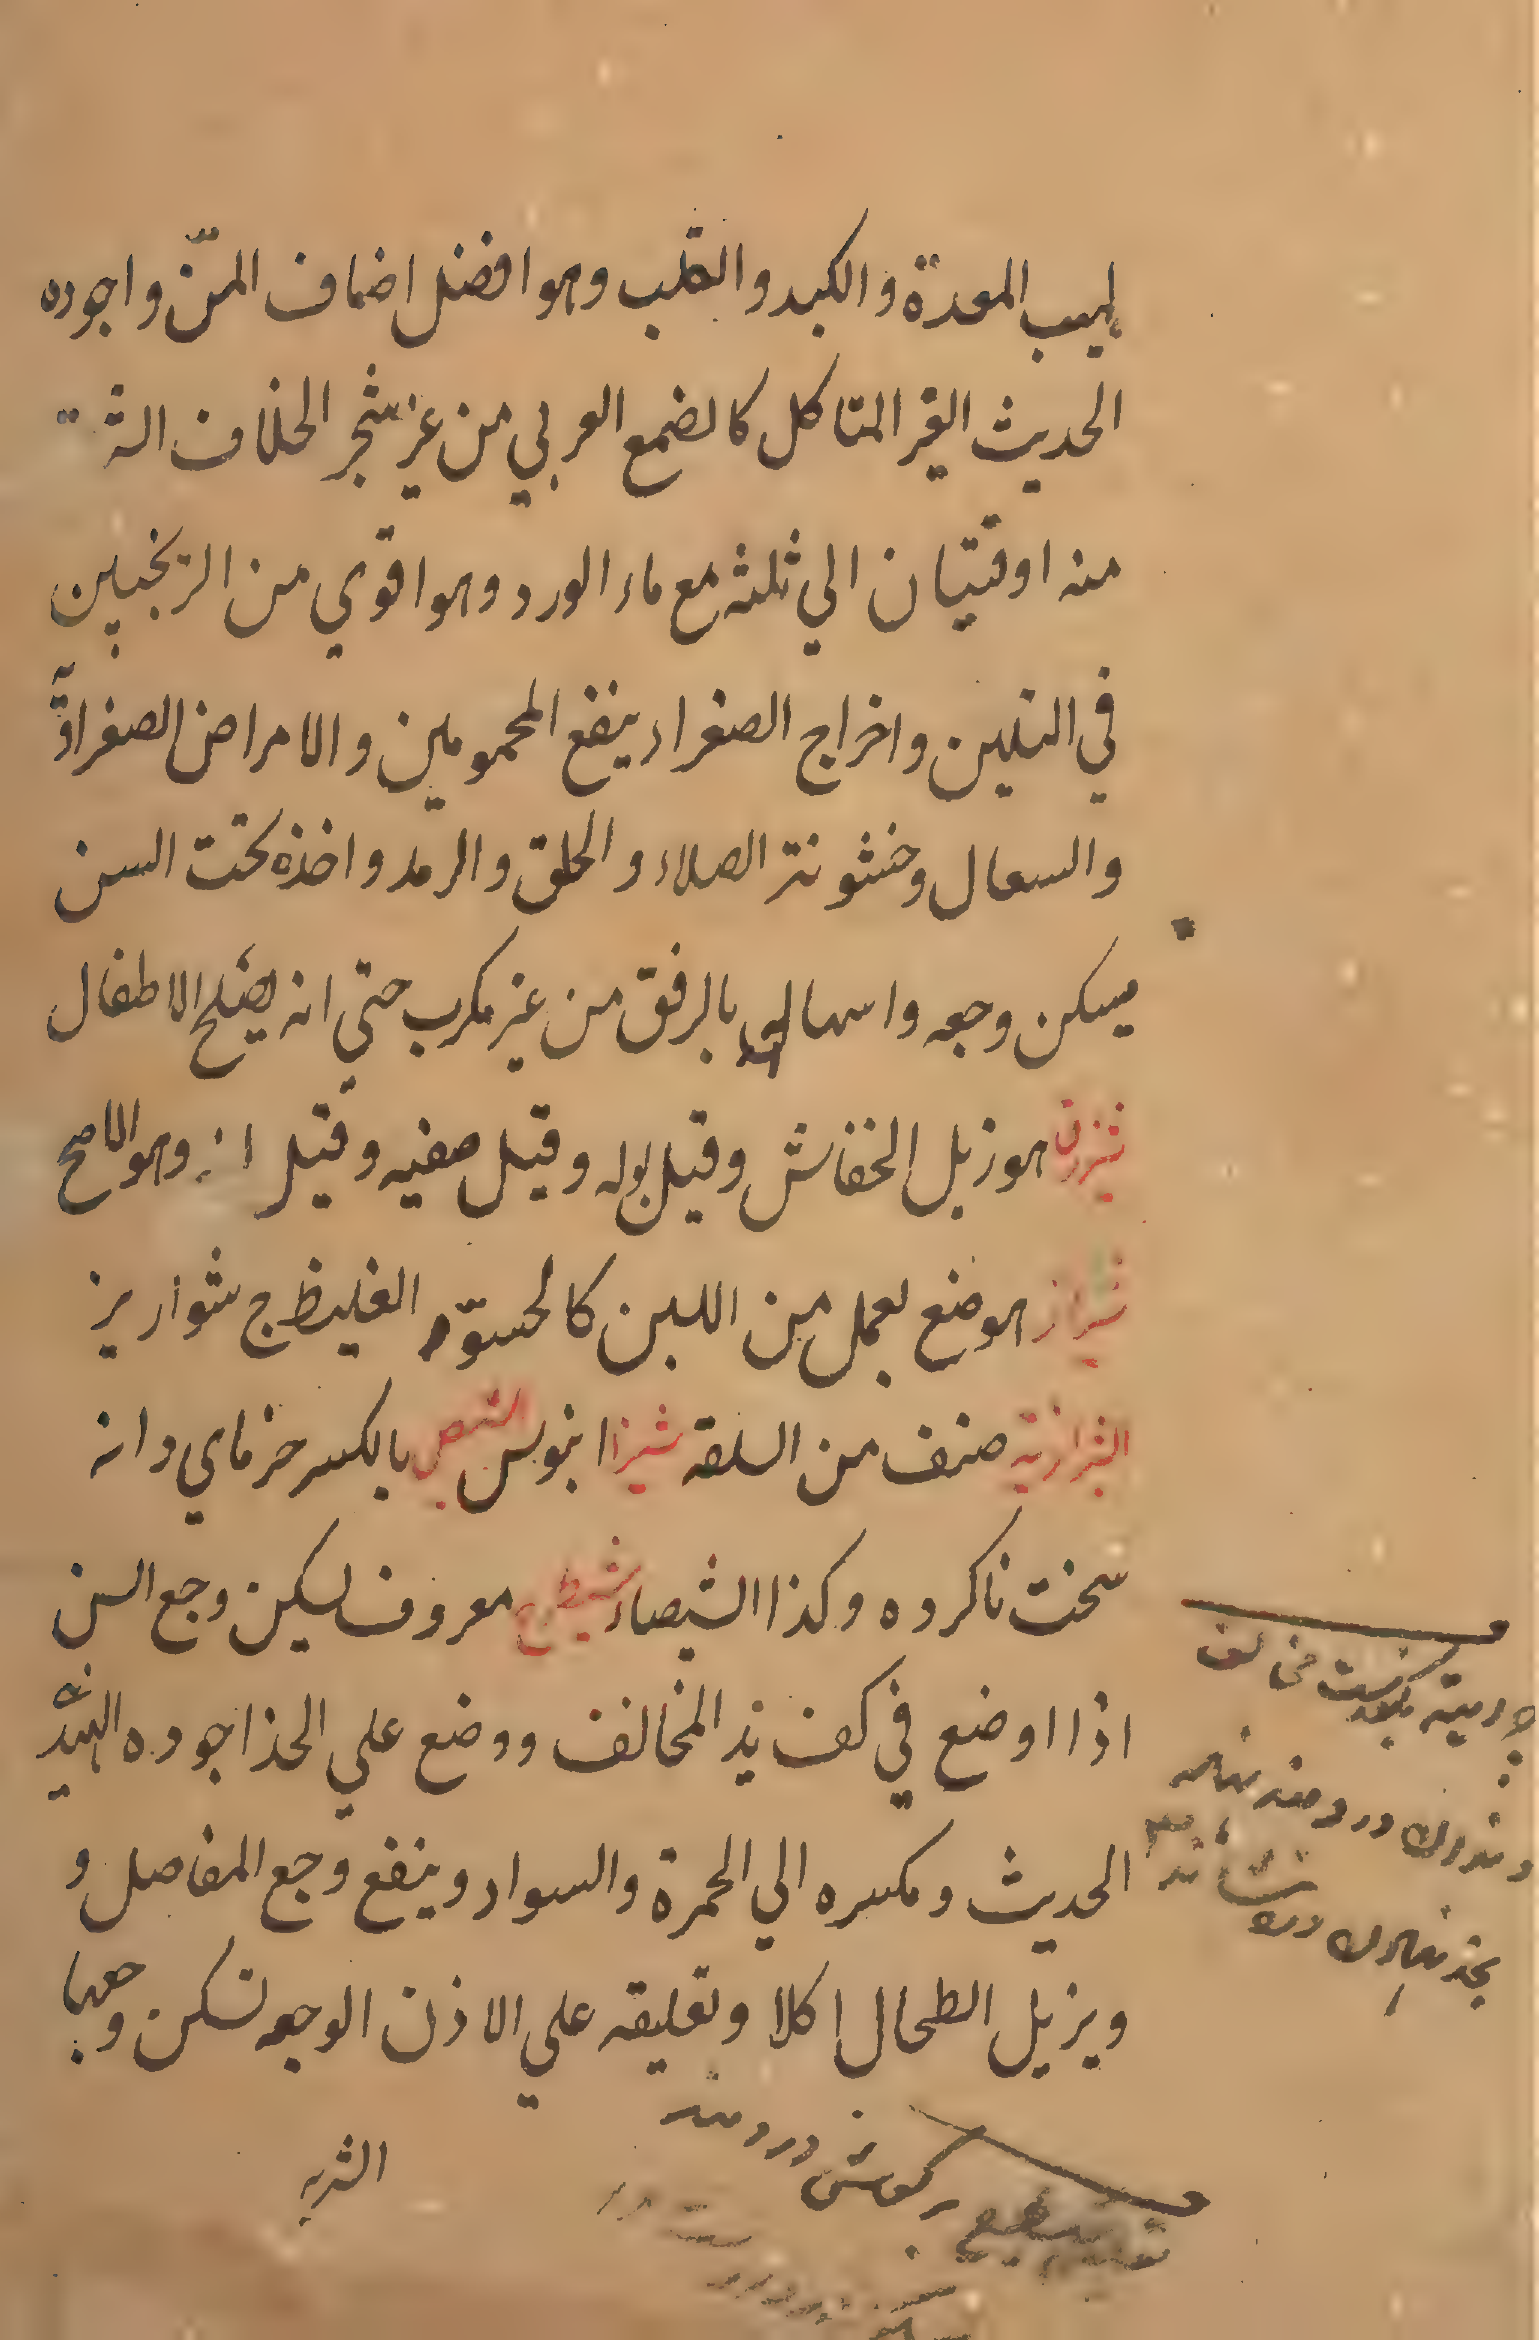 لهيب المعدة والكبد والقلب وهو افضل اضاف المنّ واجوده
الحديث الغير المتاكل كالضمع العربي من غير شجر الخلاف الشربة
منه اوقتيان الي ثلثه مع ماء الورد وهو اقوي من الترنجبين
في التليين واخراج الصفراء ينفع المحمومين والامراض الصفراويّة
والسعال وخشونة الصلاء والحلق والرمد واخذه تحت السن
يسكن وجعه واسهاله بالرفق من غير مكرب حتي انه يصلح الاطفال
شيزرق هو زبل الخفاش وقيل بوله وقيل صفيه وقيل انه وهو الاصح
شيراز هو ضع يعمل من اللبن كالحسوّ الغليظ ج شواريز
الشيرازية صنف من السلقه شيزا ابنوس الشيص بالكسر خرماي دانه
سخت ناكروه وكذا الشيصاء شيطرج معروف يسكن وجع السن
اذا اوضع في كف يد المخالف ووضع علي الخد اجوده الهنديّ
الحديث ومكسره الي الحمرة والسواد وينفع وجع المفاصل و
ويزيل الطحال اكلا وتعليقه علي الاذن الوجعه تسكن وجعها
الشربه
مخالف
دندان دردمند
بركوش دردمند